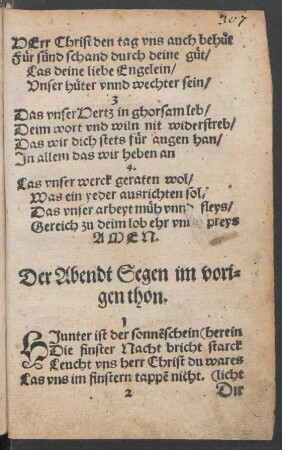 307
HErr Christ den tag vns auch behüt
Für sünd schand durch deine güt/
Las deine liebe Engelein/
Vnser hüter vnnd wechter sein/
3
Das vnser Hertz in ghorsam leb/
Deim wort vnd wiln nit widerstreb/
Das wir dich stets für augen han/
In allem das wir heben an
4.
Las vnser werck geraten wol/
Was ein yeder ausrichten sol,
Das vnser arbeyt müh vnnd fleys/
Gereich zu deim lob ehr vnd preys
AMEN.
Der Abendt Segen im vori-
gen thon.
1
HJunter ist der sonnēschein (herein
Die finster Nacht bricht starck
Leucht vns herr Christ du wares
Las vns im finstern tappē nicht. (licht
2 Dir